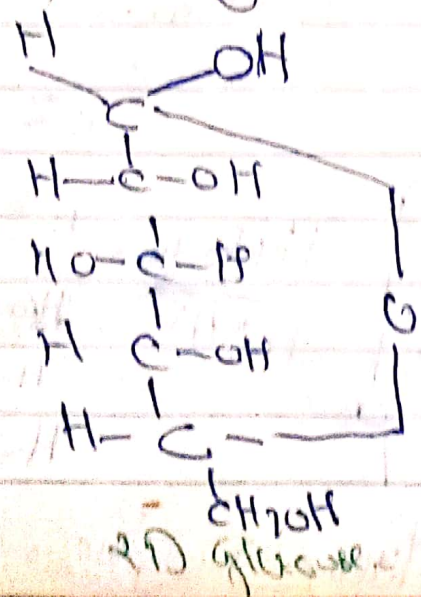 H OH
C
H—C—OH
HO—C—H
O
H C—OH
H—C
CH2OH
D glucose